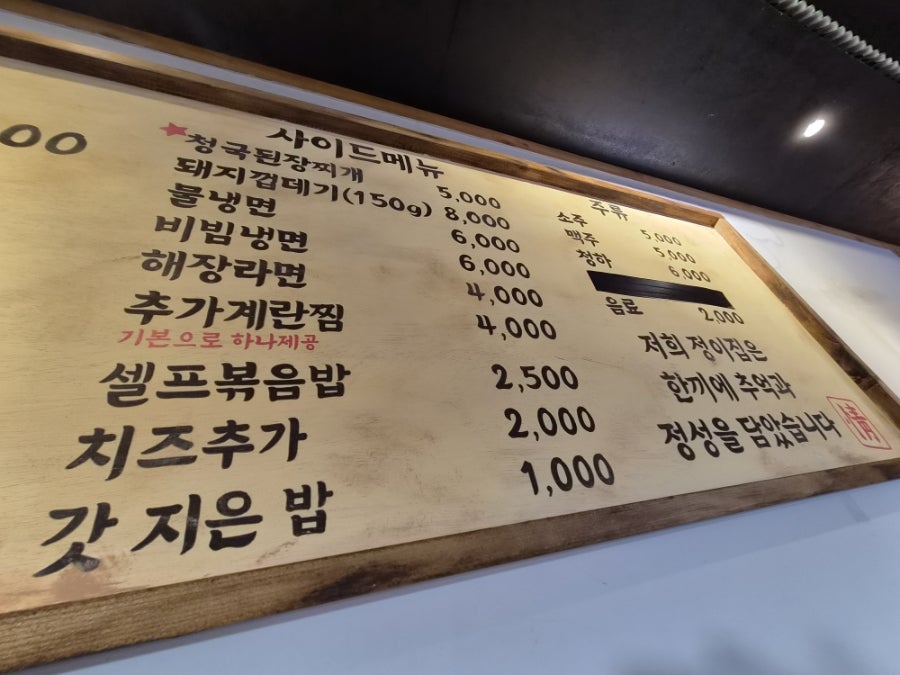 00
사이드메뉴
★청국된장찌개 5,000
돼지껍데기(150g) 8,000
물냉면 6,000
비빔냉면 6,000
해장라면 4,000
추가계란찜 4,000
기본으로 하나제공
셀프볶음밥 2,500
치즈추가 2,000
갓 지은 밥 1,000
주류
소주 5,000
맥주 5,000
청하 6,000
음료 2,000
저희 정이집은
한끼에 추억과
정성을 담았습니다
情